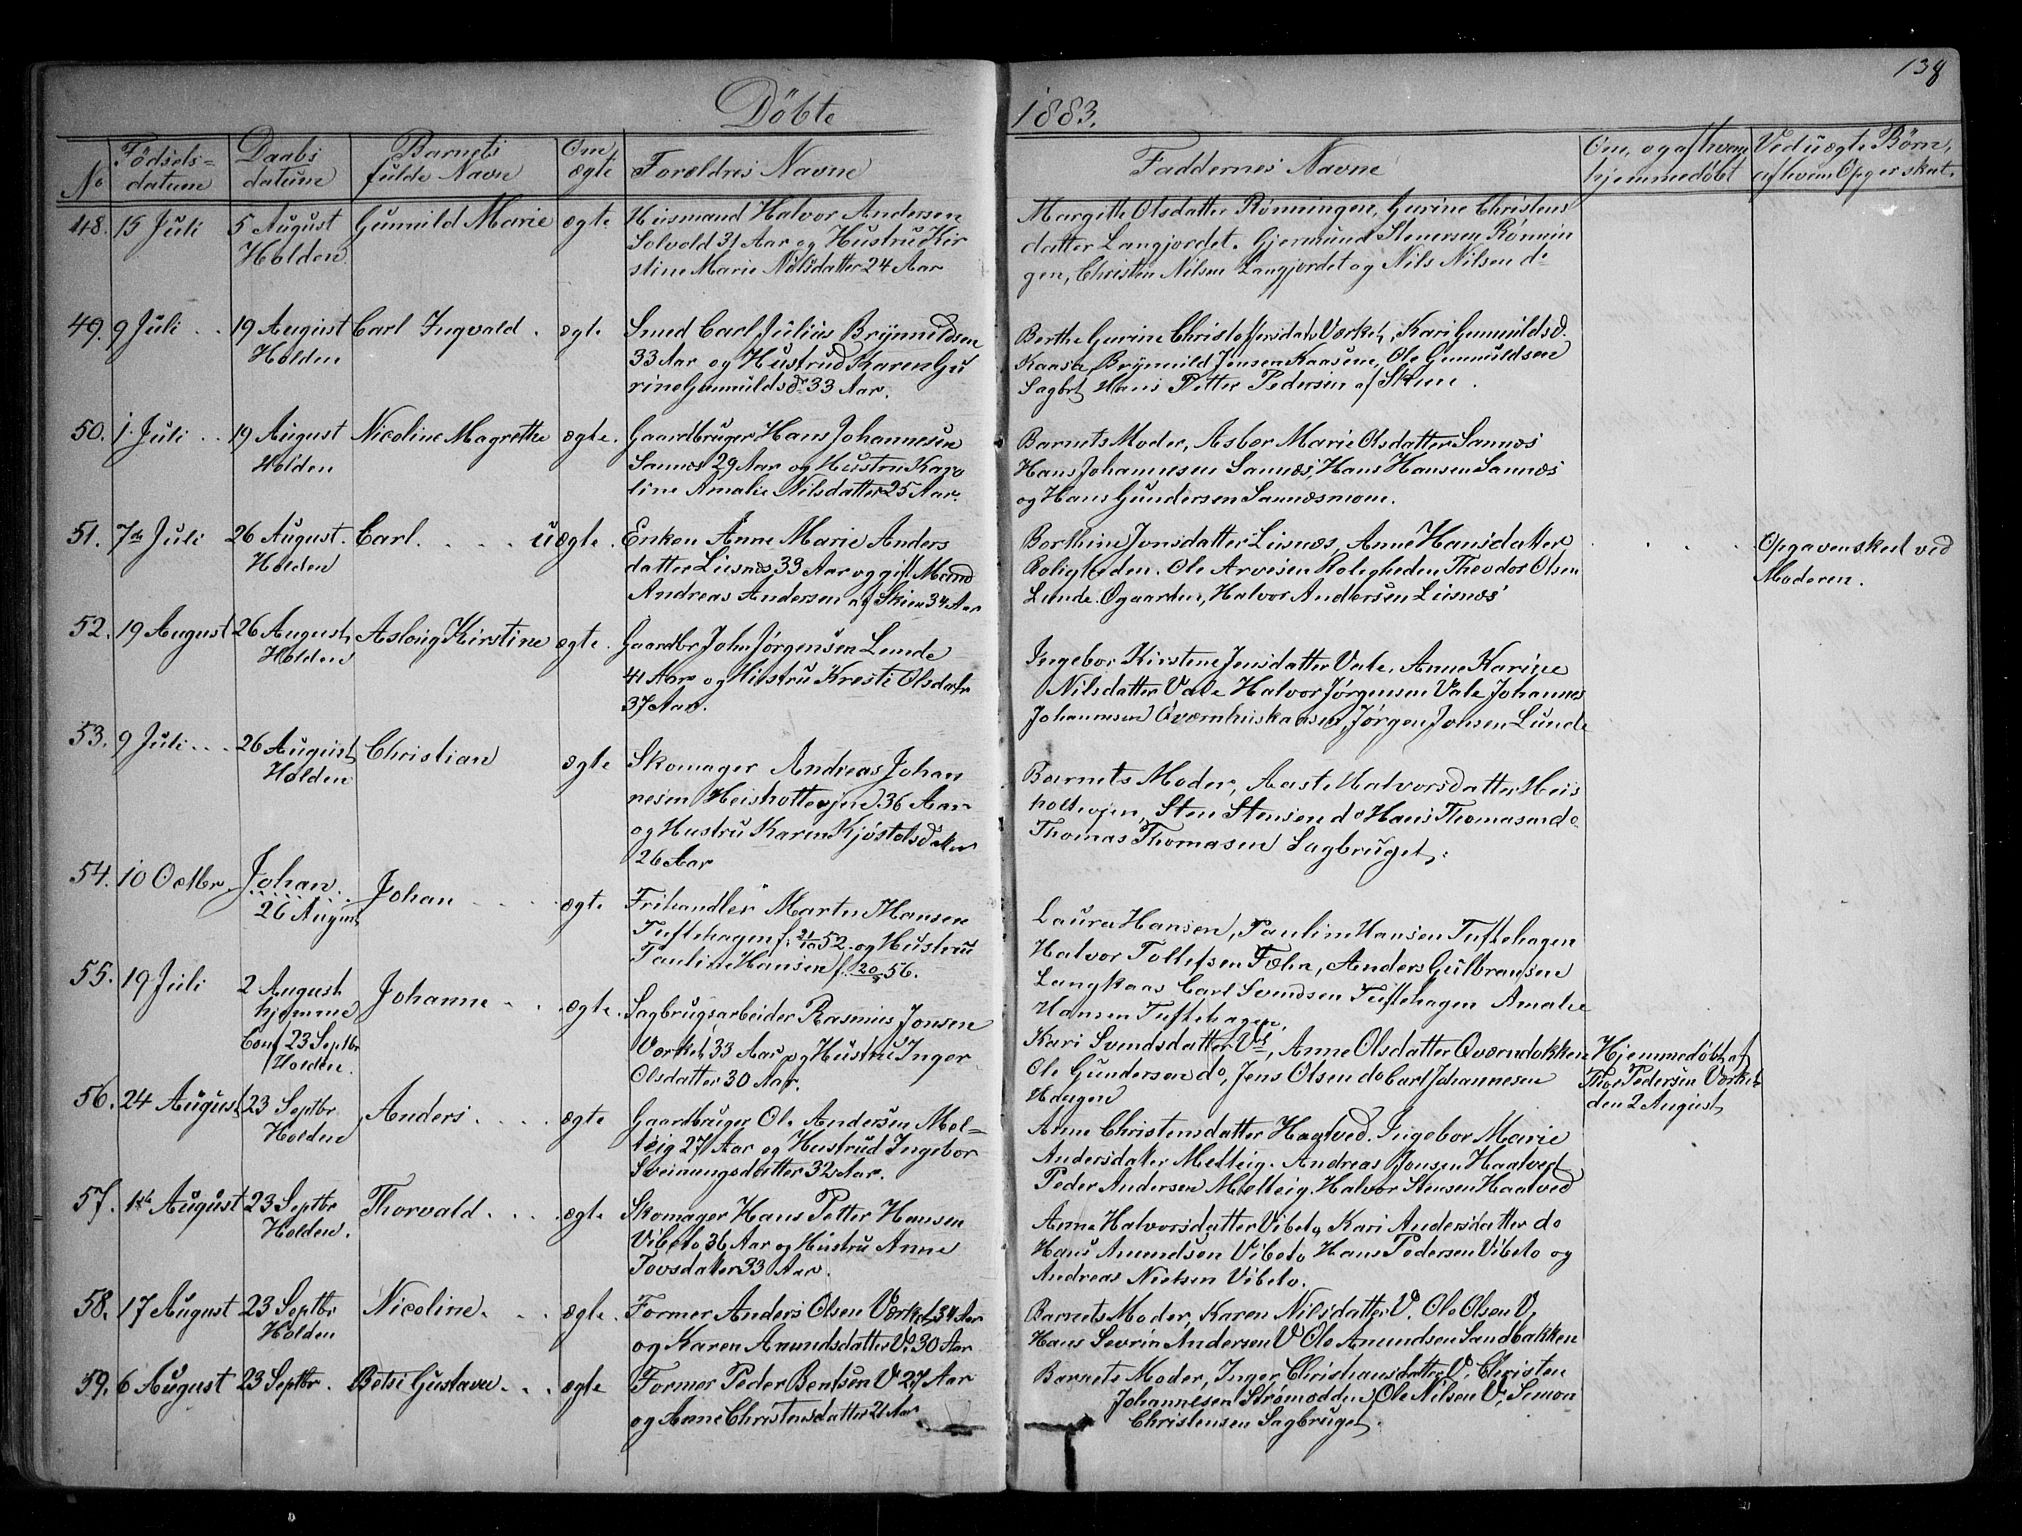 138
Döbte 1883.
No
Födsels=
datum
Daabs
datum
Barnets
fulde Navn
Om
ægte
Forældres Navne
Faddernes Navne
Om, og af hvem
hjemmedøbt
Ved uægte Børn,
af hvem Opg er skeet.
48. 15 Juli
5 August
Holden
Gunnild Marie
ægte
Huusmand Halvor Andersen
Solvold 31 Aar og Hustru Kir
stine Marie Nilsdatter 24 Aar
Margithe Olsdatter Rønningen, Gurine Christens
datter Langjordet. Gjermund Stenersen Rønnin
gen, Christen Nilsen Langjordet og Nils Nilsen do
49. 9 Juli
19 August
Holden
Carl Ingvald
ægte
Smed Carl Julius Brynnildsen
33 Aar og Hustrud Karen Gu
rine Gunnuldsd. 33 Aar.
Berthe Gurine Christoffersdatr Værket, Kari Gunnuldsd.
Kaasa, Brynnild Jensen Kaasene, Ole Gunnuldsen
Sagbrt Hans Petter Pedersen af Skien.
50. 1. Juli
19 August
Holden
Nicoline Magrethe
ægte.
Gaardbruger Hans Johannesen
Sannæs 29 Aar og Hustru Karo
line Amalie Nilsdatter 25 Aar.
Barnets Moder, Asbor Marie Olsdatter Sannæs
Hans Johannesen Sannæs, Hans Hansen Sannæs
og Hans Gundersen Sannæsmoen.
51. 7de Juli
26 August.
Holden
Carl.
uægte.
Enken Anne Marie Anders
datter Lisnæs 33 Aar og gift Mand
Andreas Andersen af Skien 34 Aar
Borthine Jonsdatter Lisnæs, Anne Hansdatter
Roligheden. Ole Arvesen Roligheden Theodor Olsen
Lunde. Ogaarden, Halvor Andersen Lisnæs
Opgaven skeet ved
Moderen.
52. 19 August
26 August,
Holden
Aslaug Kirstine
ægte.
Gaardbr John Jørgensen Lunde
41 Aar og Hustru Kresti Olsdatr
37 Aar.
Ingebor Kirstene Jensdatter Vale, Anne Karine
Nilsdatter Vale Halvor Jørgensen Vale Johannes
Johannesen Qværnhuskaasen, Jørgen Jonsen Lunde
53. 9 Juli
26 August,
Holden
Christian
ægte
Skomager Andreas Johan
nesen Heisholtvejen 36 Aar
og Hustru Karen Kjøstolsdatter
26 Aar
Barnets Moder, Aaste Halvorsdatter Heis
holtvejen, Sten Stensen do Hans Thomassen do
Thomas Thomasen Sagbruget.
54. 10 Octbr.
Johan
26 August
Johan
ægte
Frihandler Martin Hansen
Tuftehagen f. 21/10 52. og Hustru
Pauline Hansen f. 20/ 56.
Laura Hansen, Pauline Hansen Tuftehagen
Halvor Tollefsen Fæhn, Anders Gulbransen
Langkaas Carl Svendsen Tuftehagen Amalie
Hansen Tuftehagen.
55. 19 Juli
2 August
hjemme
Conf 23 Septbr
Holden.
Johanne
ægte.
Sagbrugsarbeider Rasmus Jonsen
Værket, 33 Aar og Hustru Inger
Olsdatter 30 Aar.
Kari Svendsdatter Vs, Anne Olsdatter Qværndokken
Ole Gundersen do, Jens Olsen do Carl Johannesen
Haugen
Hjemmedøbt af
Thor Pedersen Værket
den 2 August
56. 24 August
23 Septbr
Holden
Anders
ægte
Gaardbruger Ole Andersen Mel=
teig 27 Aar og Hustrud Ingebor
Sveinungsdatter 32 Aar.
Anne Christensdatter Hagtved. Ingebor Marie
Andersdater Melteig. Andreas Jonsen Haatved
Peder Andersen Melteig. Halvor Stensen Haatved
57. 1st August
23 Septbr
Holden.
Thorvald
ægte
Skomager Hans Petter Hansen
Vibeto 36 Aar og Hustru Anne
Tovsdater 33 Aar.
Anne Halvorsdatter Vibeto, Kari Andersdatter do
Hans Amundsen Vibeto Hans Pedersen Vibeto og
Andreas Nielsen Vibeto.
58. 17 August
23 Septbr
Holden
Nicoline.
ægte.
Former Anders Olsen Værket 34 Aar
og Karen Amundsdatter Vs 30 Aar
Barnets Moder, Karen Nilsdatter V. Ole Olsen V,
Hans Severin Andersen V Ole Amundsen Sandbakken
59. 6 August
23 Septbr.
Betsi Gustava
ægte
Former Peder Bentsen V 27 Aar
og Anne Christensdatter 21 Aar
Barnets Moder, Inger Christiansdatter V, Christen
Johannesen Strømodden, Ole Nilsen V, Simon
Christensen Sagbruget.